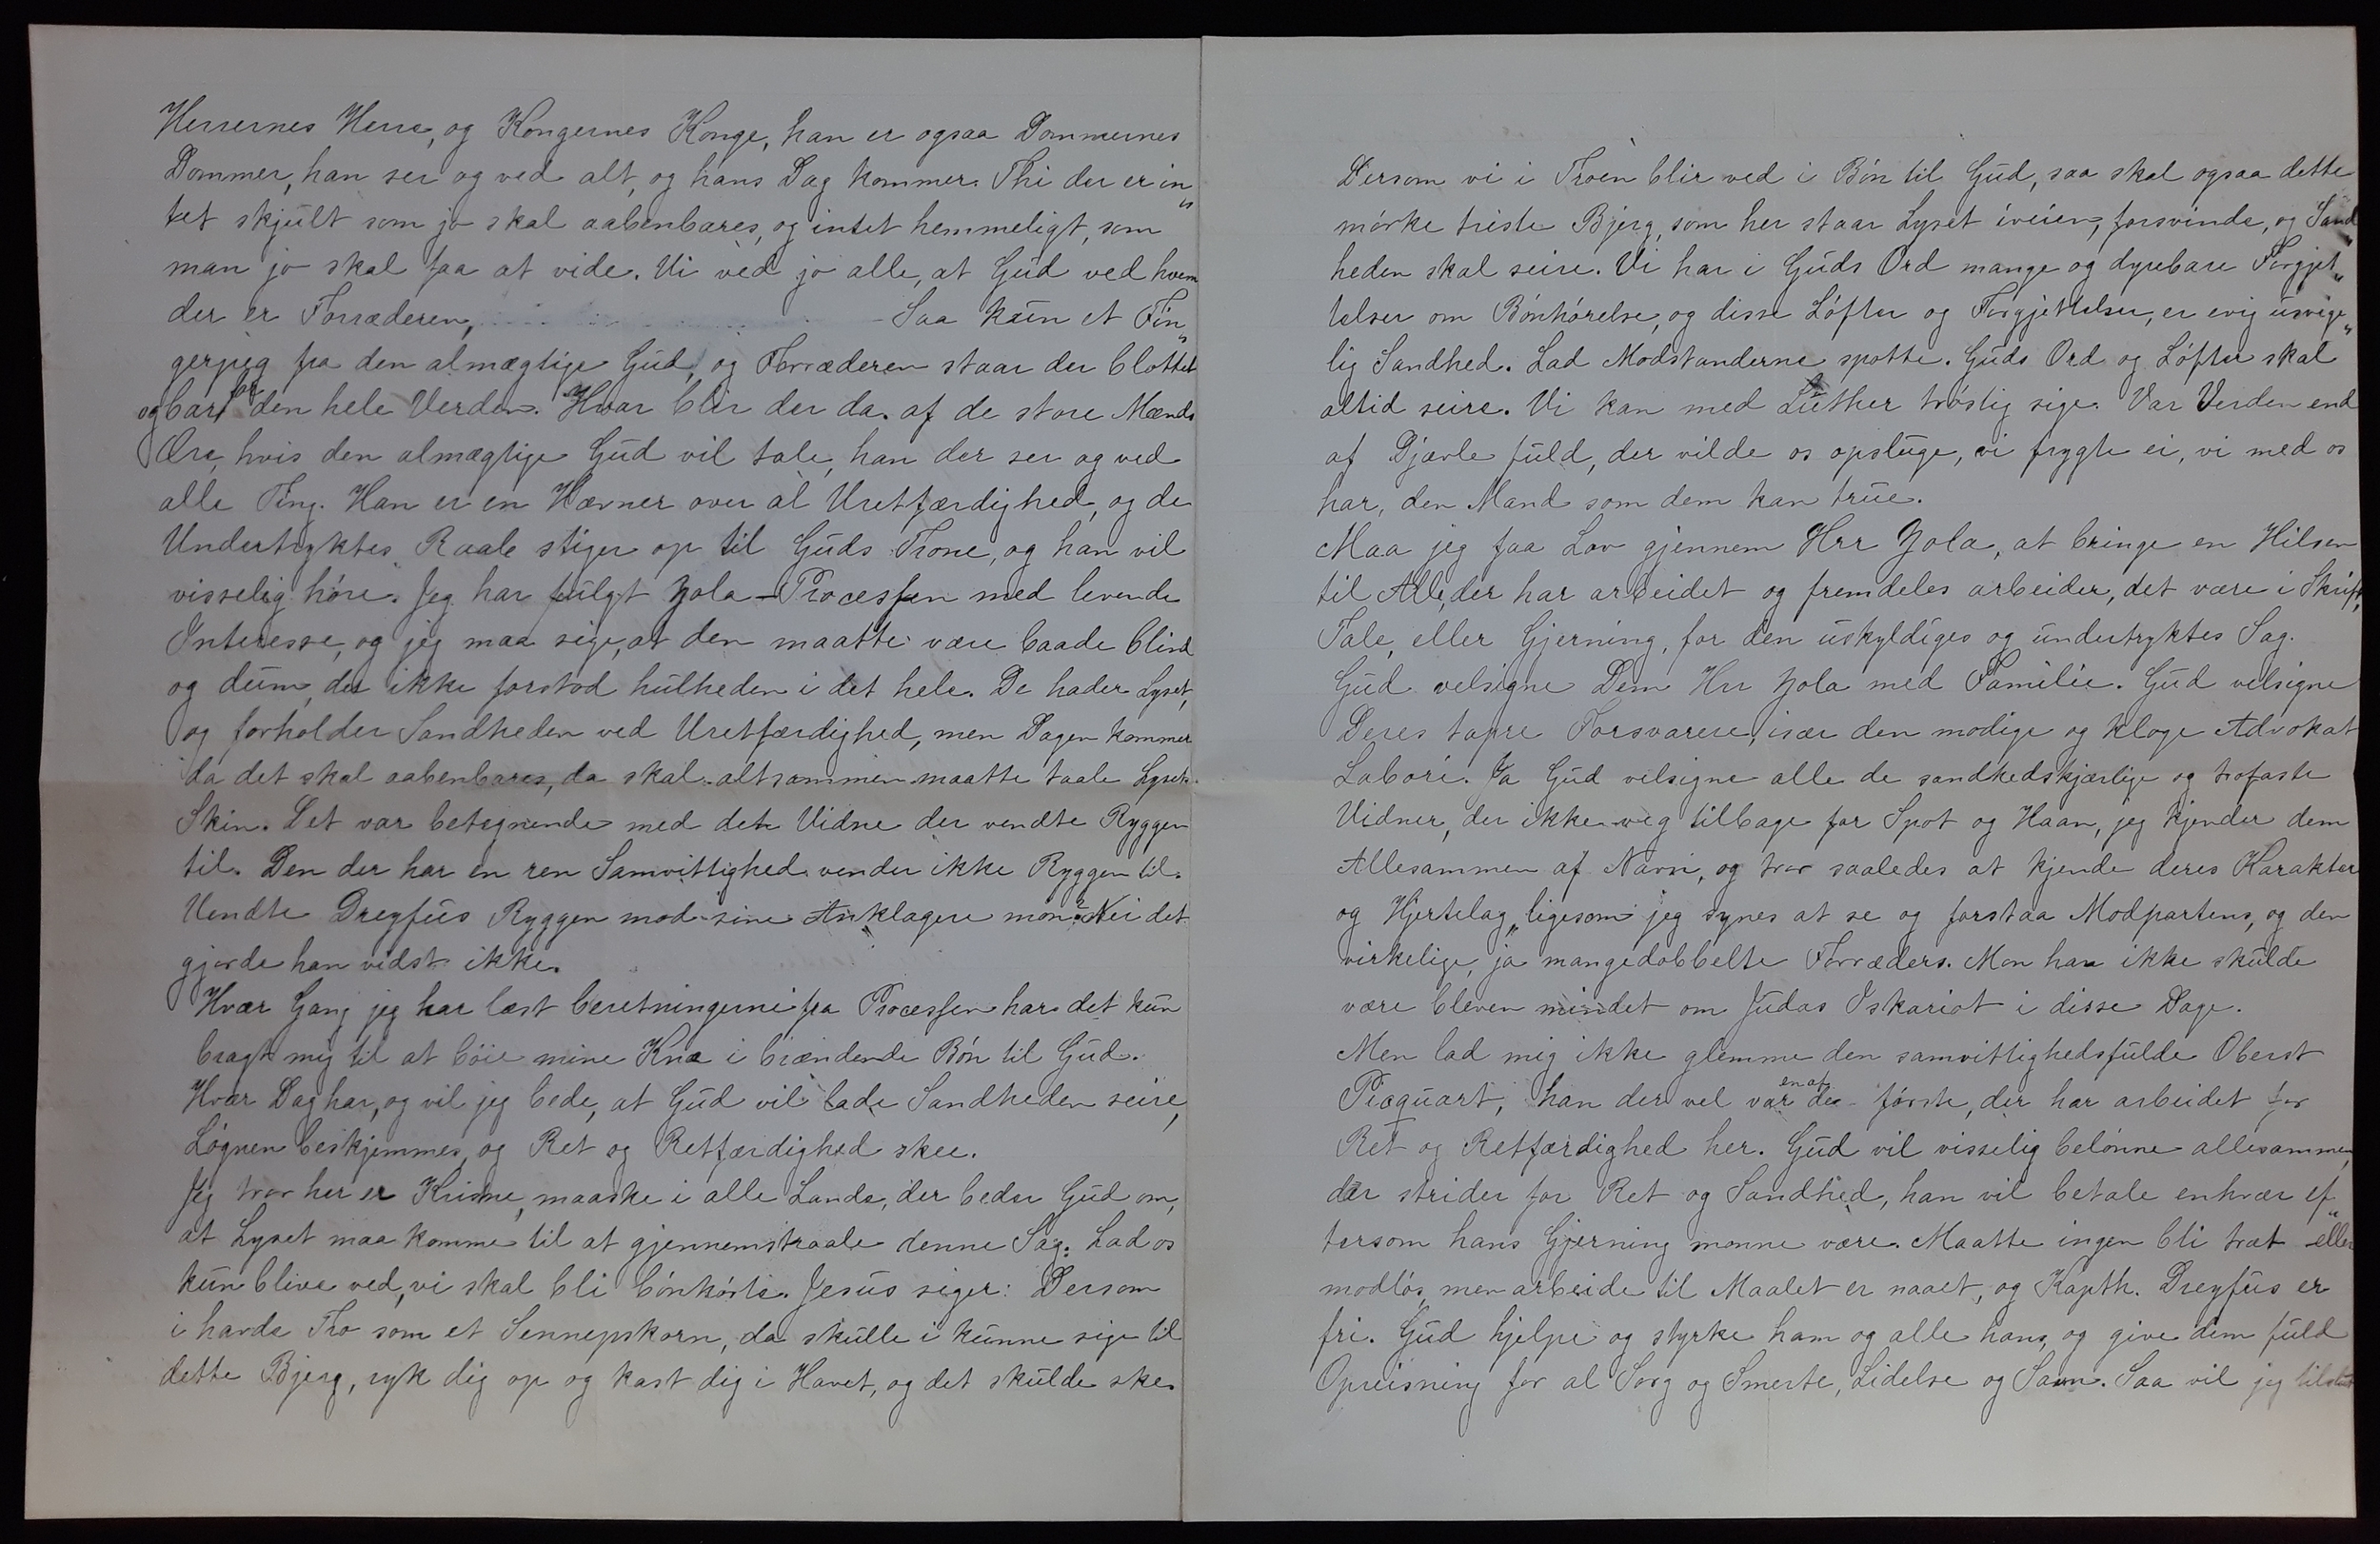 Herrernes Herre, og Kongernes Konge, han er ogsaa Dommernes
Dommer, han ser og ved alt, og hans Dag kommer. Thi der er in„
tet skjult som jo skal aabenbares, og intet hemmeligt, som
man jo skal faa at vide. Vi ved jo alle, at Gud ved hvem
der er Forræderen, Saa kun et Fin„
gerpeg fra den almægtige Gud, og Forræderen staar der blottet
og bar for den hele Verden. Hvor blir der da af de store Mænds
Ære, hvis den almægtige Gud vil tale, han der ser og ved
alle Ting. Han er en Hævner over al Uretfærdighed, og de
Undertryktes Raab stiger op til Guds Trone, og han vil
visselig høre. Jeg har fulgt Zola-Processen med levende
Interesse, og jeg maa sige, at den maatte være baade blind
og dum, der ikke forstod hulheden i det hele. De hader Lyset,
og forholder Sandheden ved Uretfærdighed, men Dagen kommer
da det skal aabenbares, da skal altsammen maatte taale Lysets
Skin. Det var betegnende med det Vidne der vendte Ryggen
til. Den der har en ren Samvittighed vender ikke Ryggen til.
Vendte Dreyfus Ryggen mod sine Anklagere mon? Nei det
gjorde han vidst ikke.
Hvær Gang jeg har læst beretningerne fra Processen har det kun
bragt mig til at bøie mine Knæ i brændende Bøn til Gud.
Hvær Dag har, og vil jeg bede, at Gud vil lade Sandheden seire,
Løgnen beskjemmes, og Ret og Retfærdighed skee.
Jeg tror her er Kristne, maaske i alle Lande, der beder Gud om,
at Lyset maa komme til at gjennemstraale denne Sag. Lad os
kun blive ved, vi skal bli bønhørte. Jesus siger: Dersom
i havde Tro som et Sennepskorn, da skulle i kunne sige til
dette Bjerg, ryk dig op og kast dig i Havet, og det skulde ske.
Dersom vi i Troen blir ved i Bøn til Gud, saa skal ogsaa dette
mørke triste Bjerg, som her staar Lyset iveien, forsvinde, og Sand
heden skal seire. Vi har i Guds Ord mange og dyrebare Forgjet„
telser om Bønhørelse, og disse Løfter og Forgjettelser, er evig usvige„
lig Sandhed. Lad Modstanderne spotte. Guds Ord og Løfter skal
altid seire. Vi kan med Luther trøstig sige. Var Verden end
af Djævle fuld, der vilde os opsluge, vi frygte ei, vi med os
har, den Mand som dem kan true.
Maa jeg faa Lov gjennem Hrr Zola, at bringe en Hilsen
til Alle, der har arbeidet og fremdeles arbeider, det være i Skrift,
Tale, eller Gjerning, for den uskyldiges og undertryktes Sag.
Gud velsigne Dem Hrr Zola med Familie. Gud velsigne
Deres tapre Forsvarere, især den modige og kloge Advokat
Labori. Ja Gud velsigne alle de sandhedskjærlige og trofaste
Vidner, der ikke veg tilbage for Spot og Haan, jeg kjender dem
Allesammen af Navn, og tror saaledes at kjende deres Karakter
og Hjertelag, ligesom jeg synes at se og forstaa Modpartens, og den
virkelige, ja mangedobbelte Forræders. Mon han ikke skulde
være bleven mindet om Judas Iskariot i disse Dage.
Men lad mig ikke glemme den samvittighedsfulde Oberst
Picquart, han der vel var en af de første, der har arbeidet for
Ret og Retfærdighed her. Gud vil visselig belønne allesammen,
der strider for Ret og Sandhed, han vil betale enhvær ef„
tersom hans Gjerning monne være. Maatte ingen bli træt eller
modløs, men arbeide til Maalet er naaet, og Kapth. Dreyfus er
fri. Gud hjelpe og styrke ham og alle hans, og give dem fuld
Opreisning for al Sorg og Smerte, Lidelse og Savn. Saa vil jeg